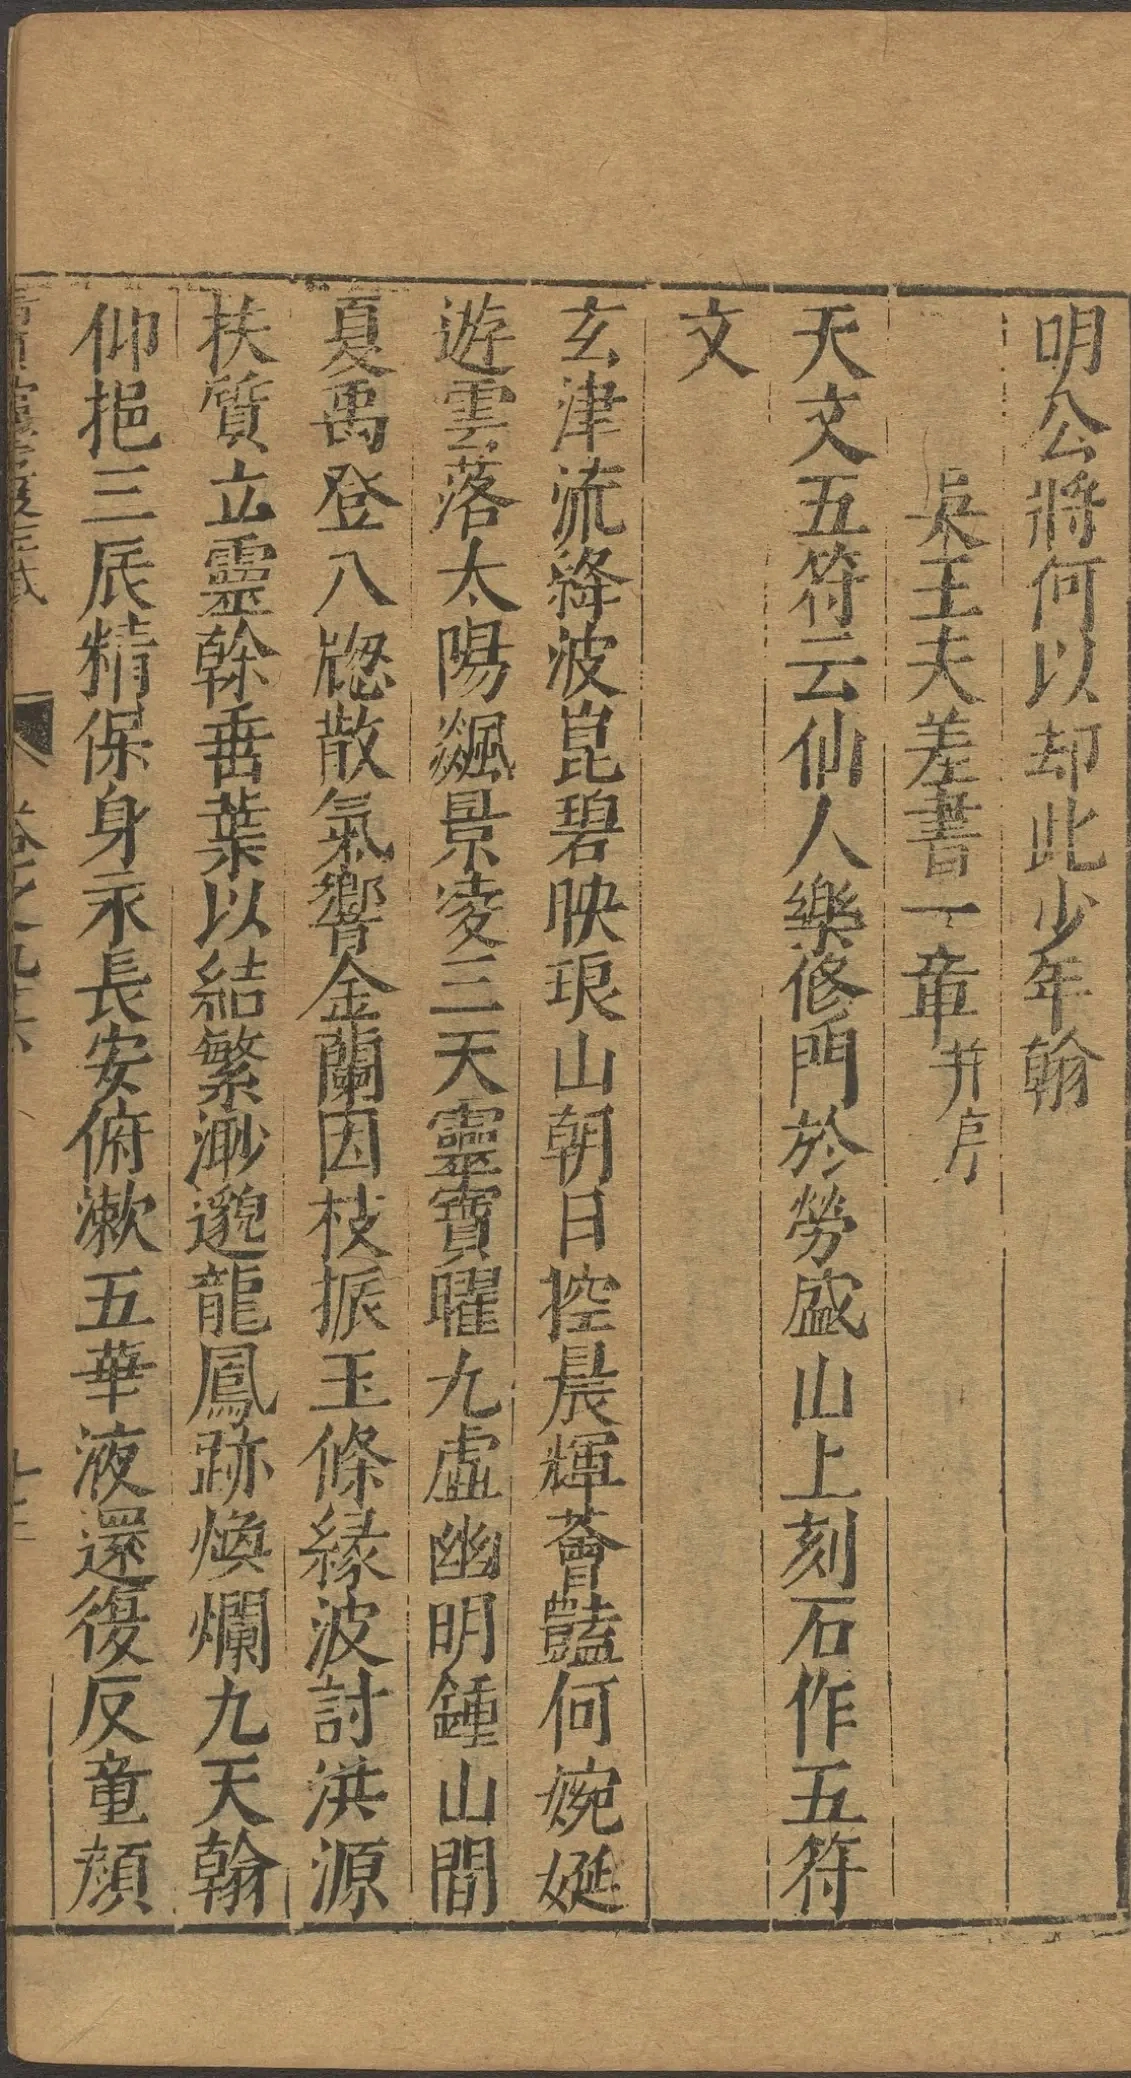 明公將何以却此少年翰
吳王夫差書一章并序
天文五符云仙人樂修門於勞盛山上刻石作五符
文
玄津流絳波崑碧映琅山朝日控晨輝薈豔何婉娫
遊雲落太陽飈景凌三天靈寶曜九虛幽明鍾山間
夏禹登八牕散氣響金蘭因枝振玉條緣波討洪源
扶質立靈榦垂葉以結繁渺邈龍鳳跡煥爛九天翰
仰挹三辰精保身永長安俯漱五華液還復反童顏
卷之九